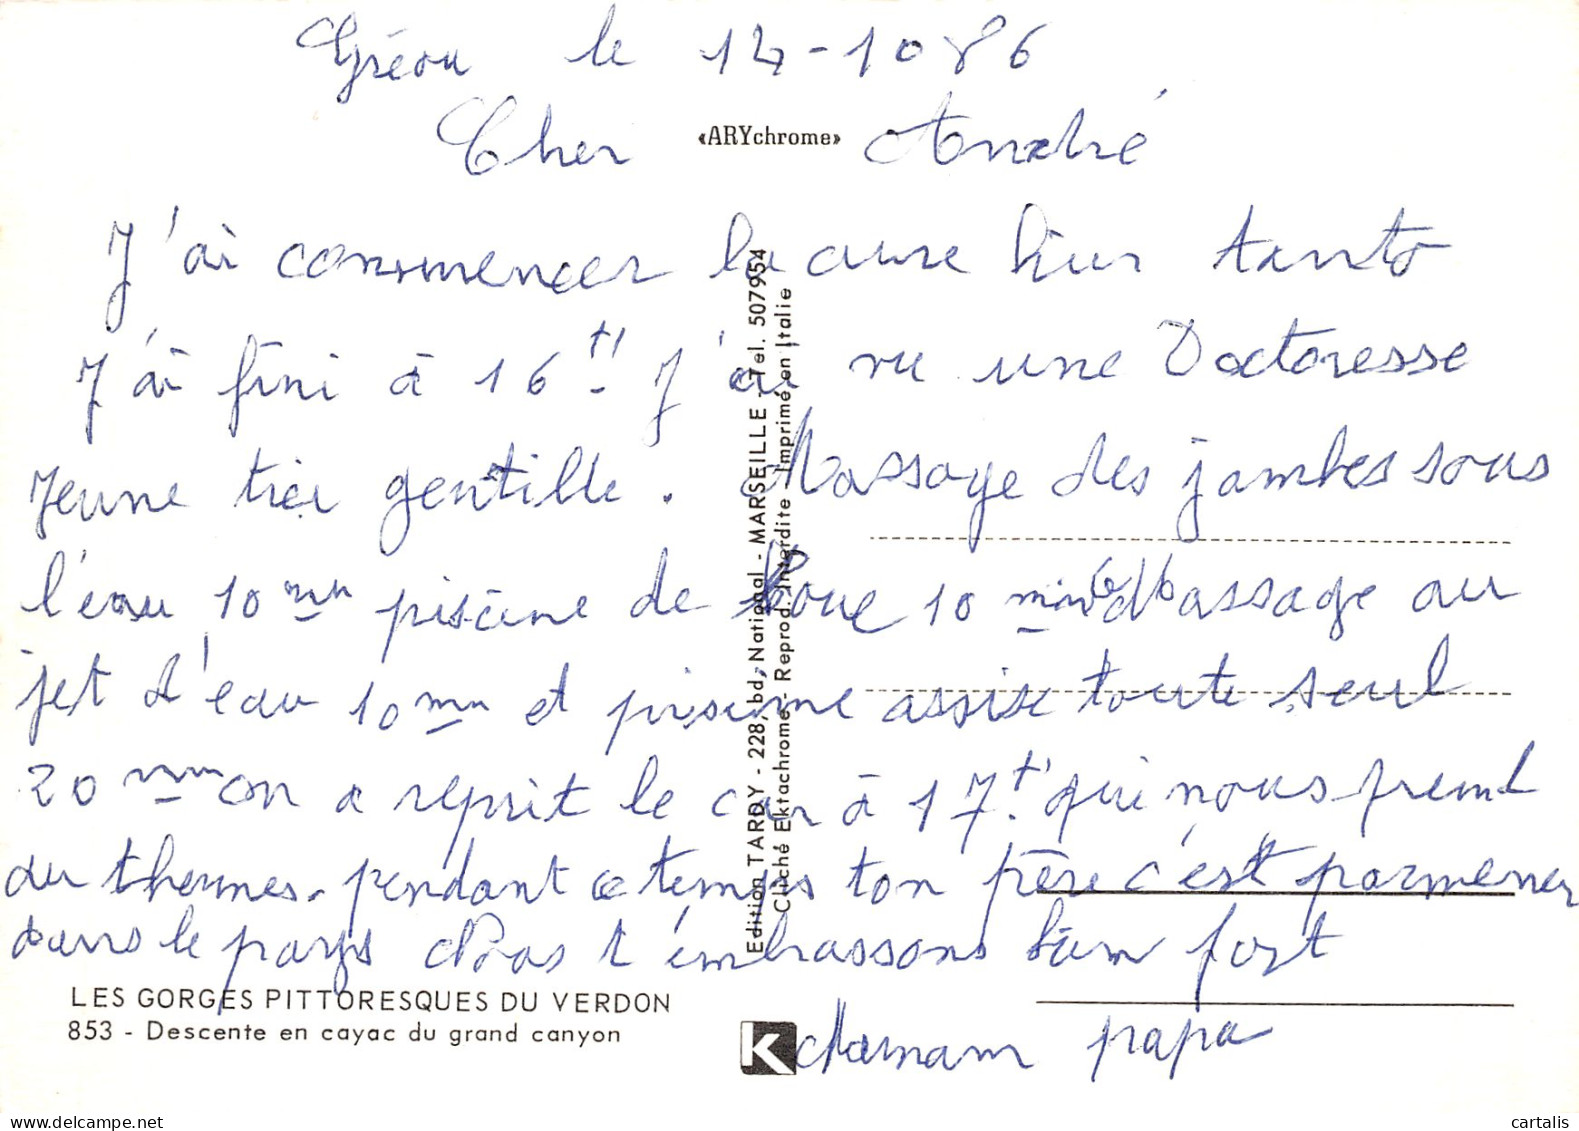 Gréou le 14-10 86
Cher «ARYchrome» André
J'ai commencer la cure hier tanto
J'ai fini à 16 H J'ai vu une Doctoresse
Jeune trer gentille. Massage des jambes sous
l'eau 10 mn piscine de boue 10 min Massage au
jet d'eau 10 mn et piscine assise toute seul
20 mn on a reprit le car à 17 H qui nous prend
du thermes. pendant ce temps ton père c'est parmener
dans le pays Nous t'embrassons bien fort
Maman papa
Edition TARDY - 228, bd. National - MARSEILLE - Tel. 507954
Cliché Ektachrome - Reprod. Interdite - Imprimé en Italie
LES GORGES PITTORESQUES DU VERDON
853 - Descente en cayac du grand canyon
K
cartalis
www.delcampe.net